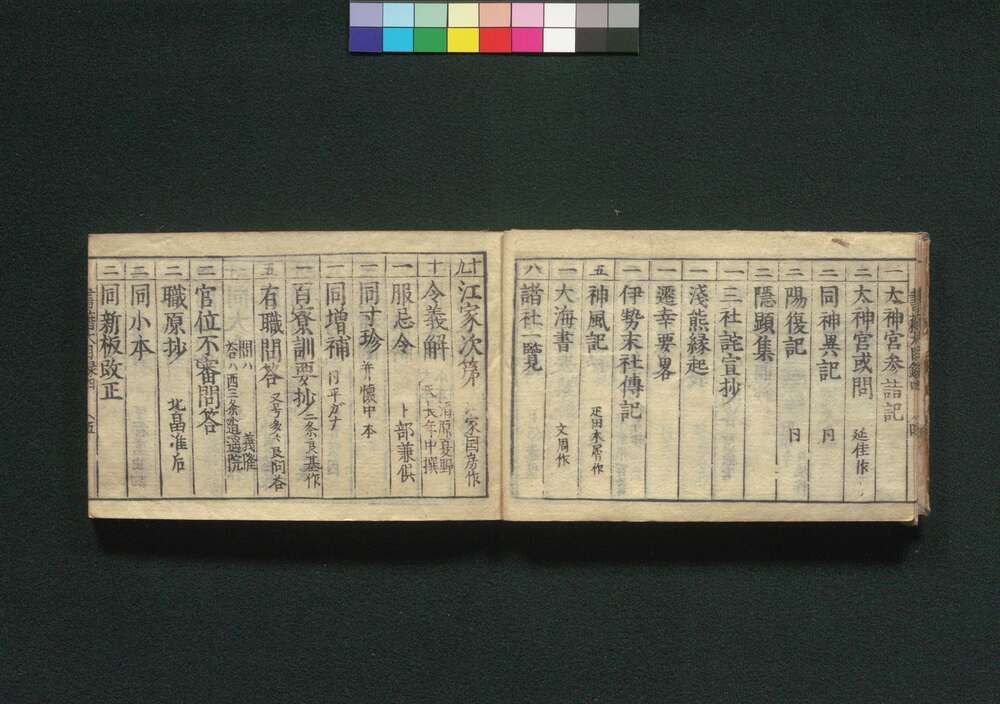 一 太神宮参詣記
二 太神宮或問 延佳作
二 同神異記 同
二 陽復記 同
二 隠顕集
一 三社託宣抄
一 淺熊縁起
一 遷幸要畧
一 伊勢末社傳記
五 神風記 疋田本居作
一 大海書 文周作
八 諸社一覧
十九 江家次第 家国房作
十 令義解 清原夏野 天長年中撰
一 服忌令 卜部兼倶
一 同寸珍 并懐中本
一 同増補 同平ガナ
一 百寮訓要抄 二条良基作
五 有職問答 又号多々良問答
同大 問ハ義隆 答ハ西三条逍遥院
三 官位不審問答
二 職原抄 北畠准后
二 同小本
二 同新板改正